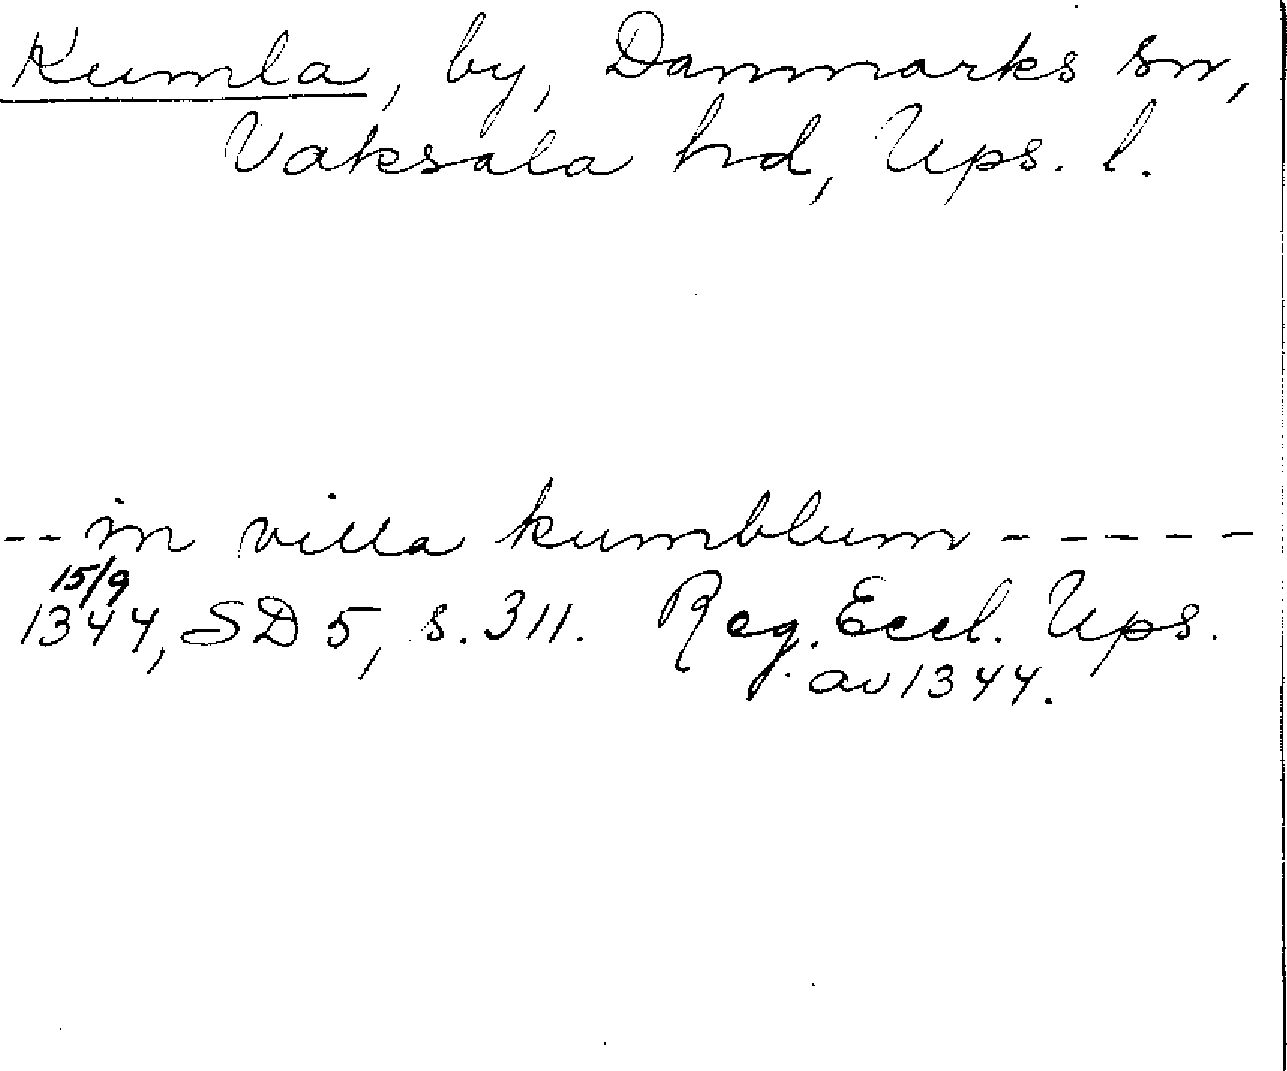 Kumla, by, Danmarks sn,
Vaksala hd, Ups. l.
-- in villa kumblum -----
15/9
1344, SD 5, s. 311. Reg. Eccl. Ups.
av 1344.